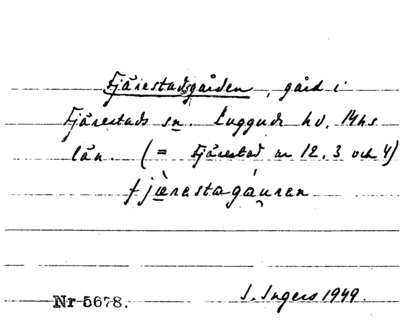 Fjärestadsgården, gård i
Fjärestads sn. Luggude hd. Mhs
län. (= Fjärestad nr 12. 3 och 4)
fjæ̀restagáu̯ren
Nr 5678. I. Ingers 1949.